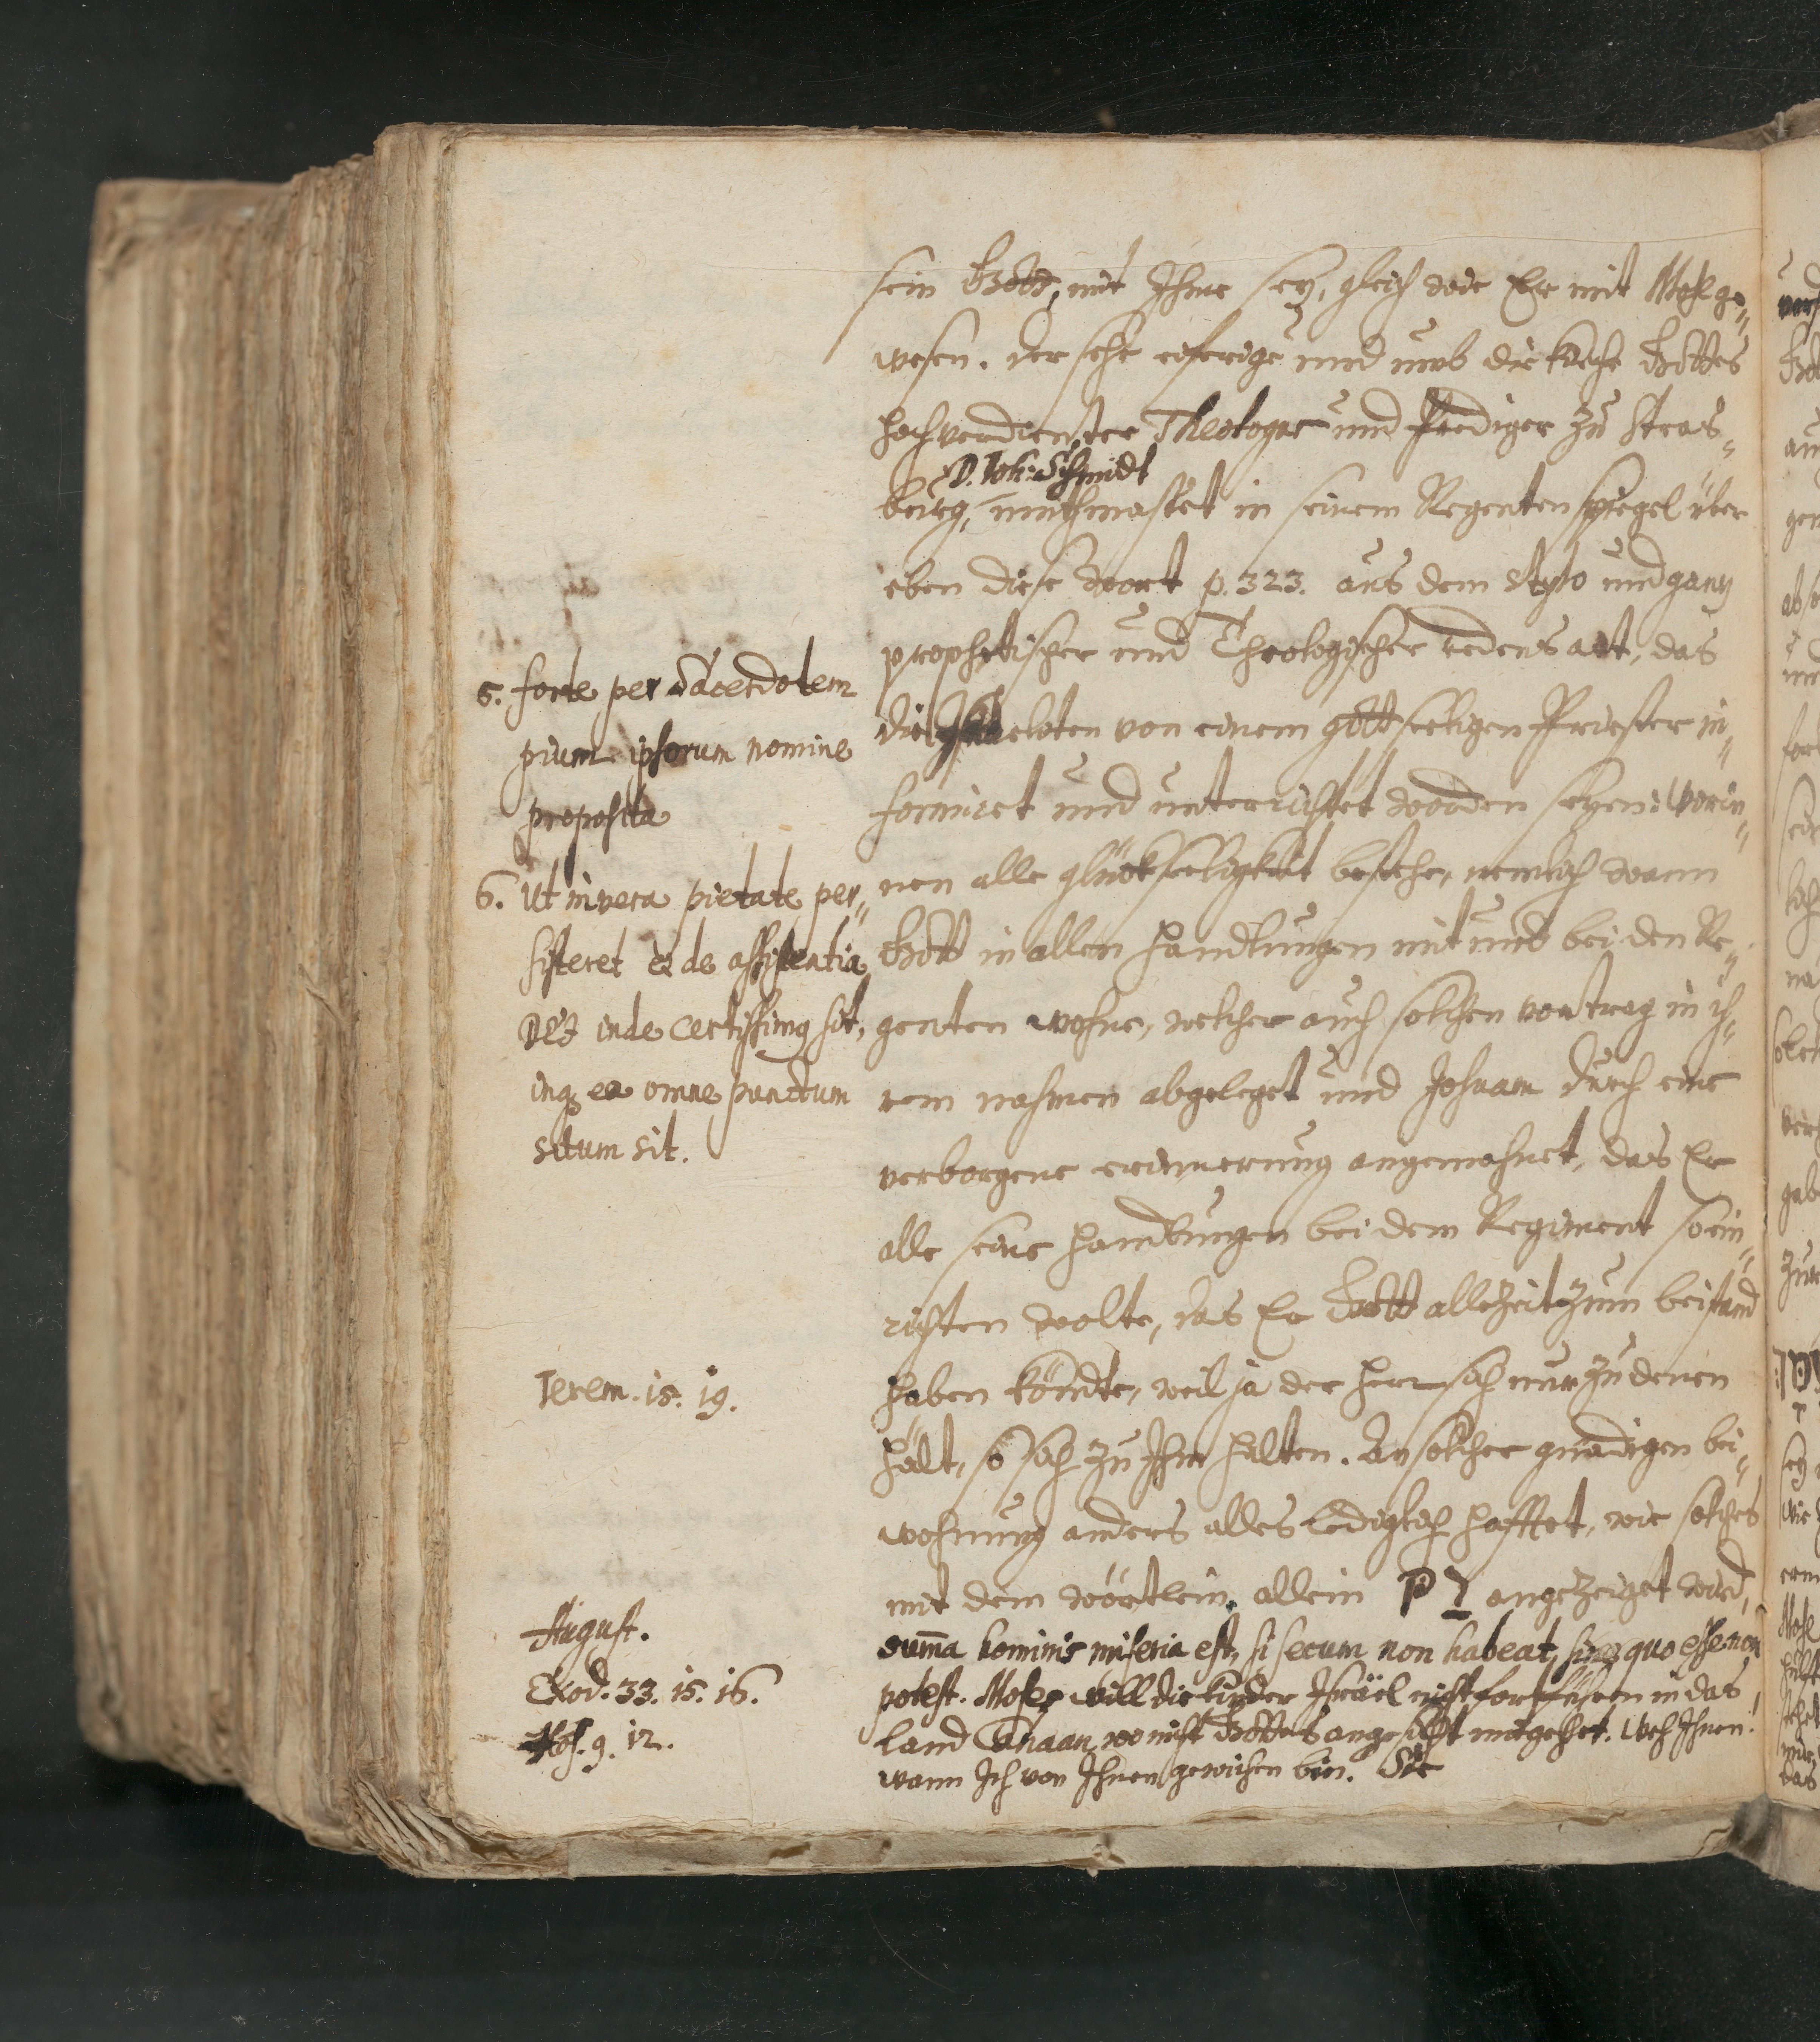 sein Gott, mit Ihme seÿ, gleich wie Er mit Mose ge-
wesen. der sehr eiferige und umb die kirche Gottes
hochverdienter Theologus und Prediger zu Stras-
D. Joh: Schmidt
burg, muthmasset in seinem Regentenspiegel über
eben diese wort p. 323. aus dem stylo und gantz
prophetischer und Theologischer redens art, das
die Israeliten von einem gottseeligen Priester in-
formiret und unterrichtet worden seÿen: worin-
nen alle glückseeligkeit bestehe, nemlich wann
Gott in allen handlungen mit und bei den Re-
genten wohne, welcher auch solchen vortrag in ih-
rem nahmen abgeleget und Josuam durch eine
verborgene erinnerung angemahnet, das Er
alle seine handlungen bei dem Regiment so ein-
richten wolte, das Er Gott allezeit zum beistand
haben köndte, weil ja der herr sich nur zu denen
hält, so sich zu Ihm halten. An solcher gnädigen bei-
wohnung anders alles lediglich hafftet, wie solches
mit dem wörtlein allein רק angezeiget wird,
summa hominis miseria est, si secum non habeat, sine quo esse non
potest. Moses will die kinder Israel nicht fortführen in das
land Canaan, wo nicht Gottes angesicht mitgehet. Weh Ihnen!
wann Ich von Ihnen gewichen bin. Sie
5. forte per Sacerdotem
pium ipsorum nomine
proposita
6. Ut in vera pietate per-
sisteret et de assistentia
DEI inde certissimus sit,
inque ea omne punctum
situm sit.
Jerem. 15. 19.
August.
Exod. 33. 15. 16.
Hos. 9. 12.